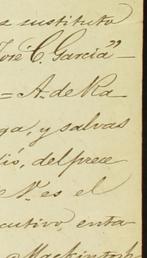 s sustituto
José C. Garcia" —
= A. de Ra
ga, y salvas
dió, del prece
e Nº. es el
cutivo, enta
Mackintosh